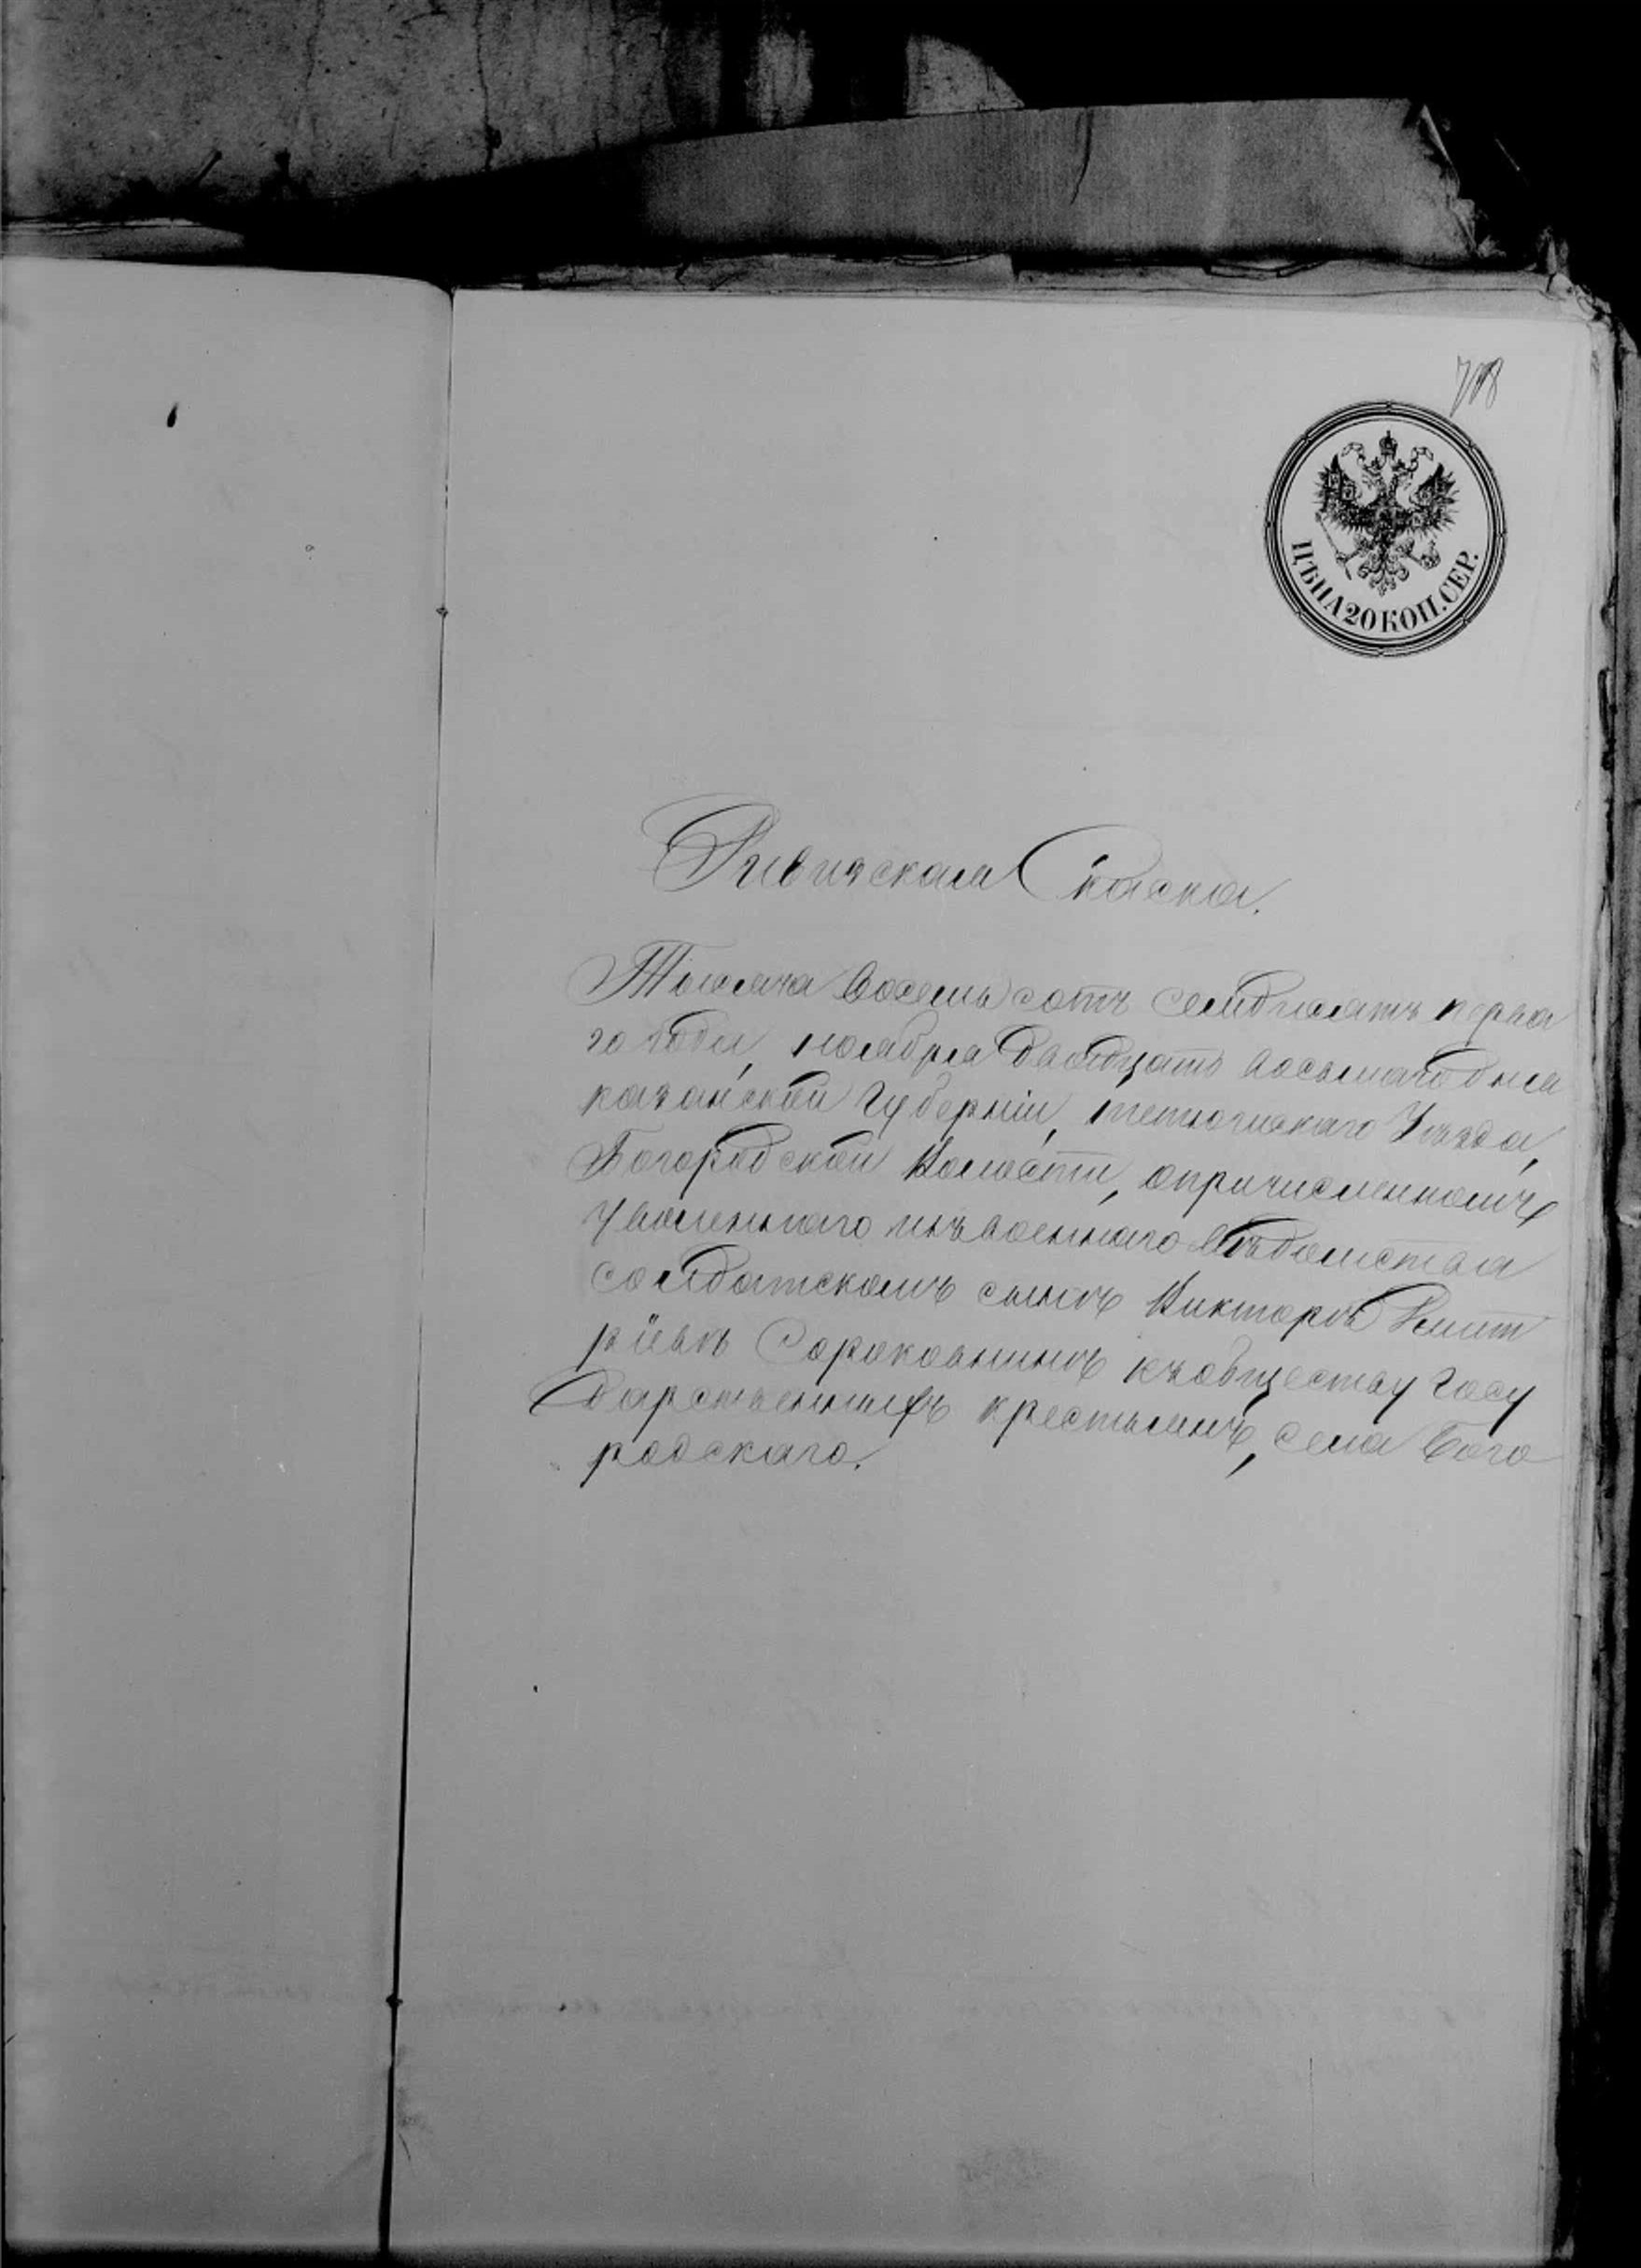 708
ЦѢНА 20 КОП. СЕР.
Ривизская Скаска.
Тысяча восемь сотъ семдисятъ перва
го года, ноября двадцать восьмаго дня
казанской Губерніи, тетюшскаго Уѣзда,
Богородской Волости, опричисленномъ
Уволеннаго изъ военнаго вѣдомства
солдатскомъ сынѣ Викторѣ Дмит
ріевѣ Сорокованинѣ къ обществу Госу
дарственныхъ крестьянъ, села Бого
родскаго.